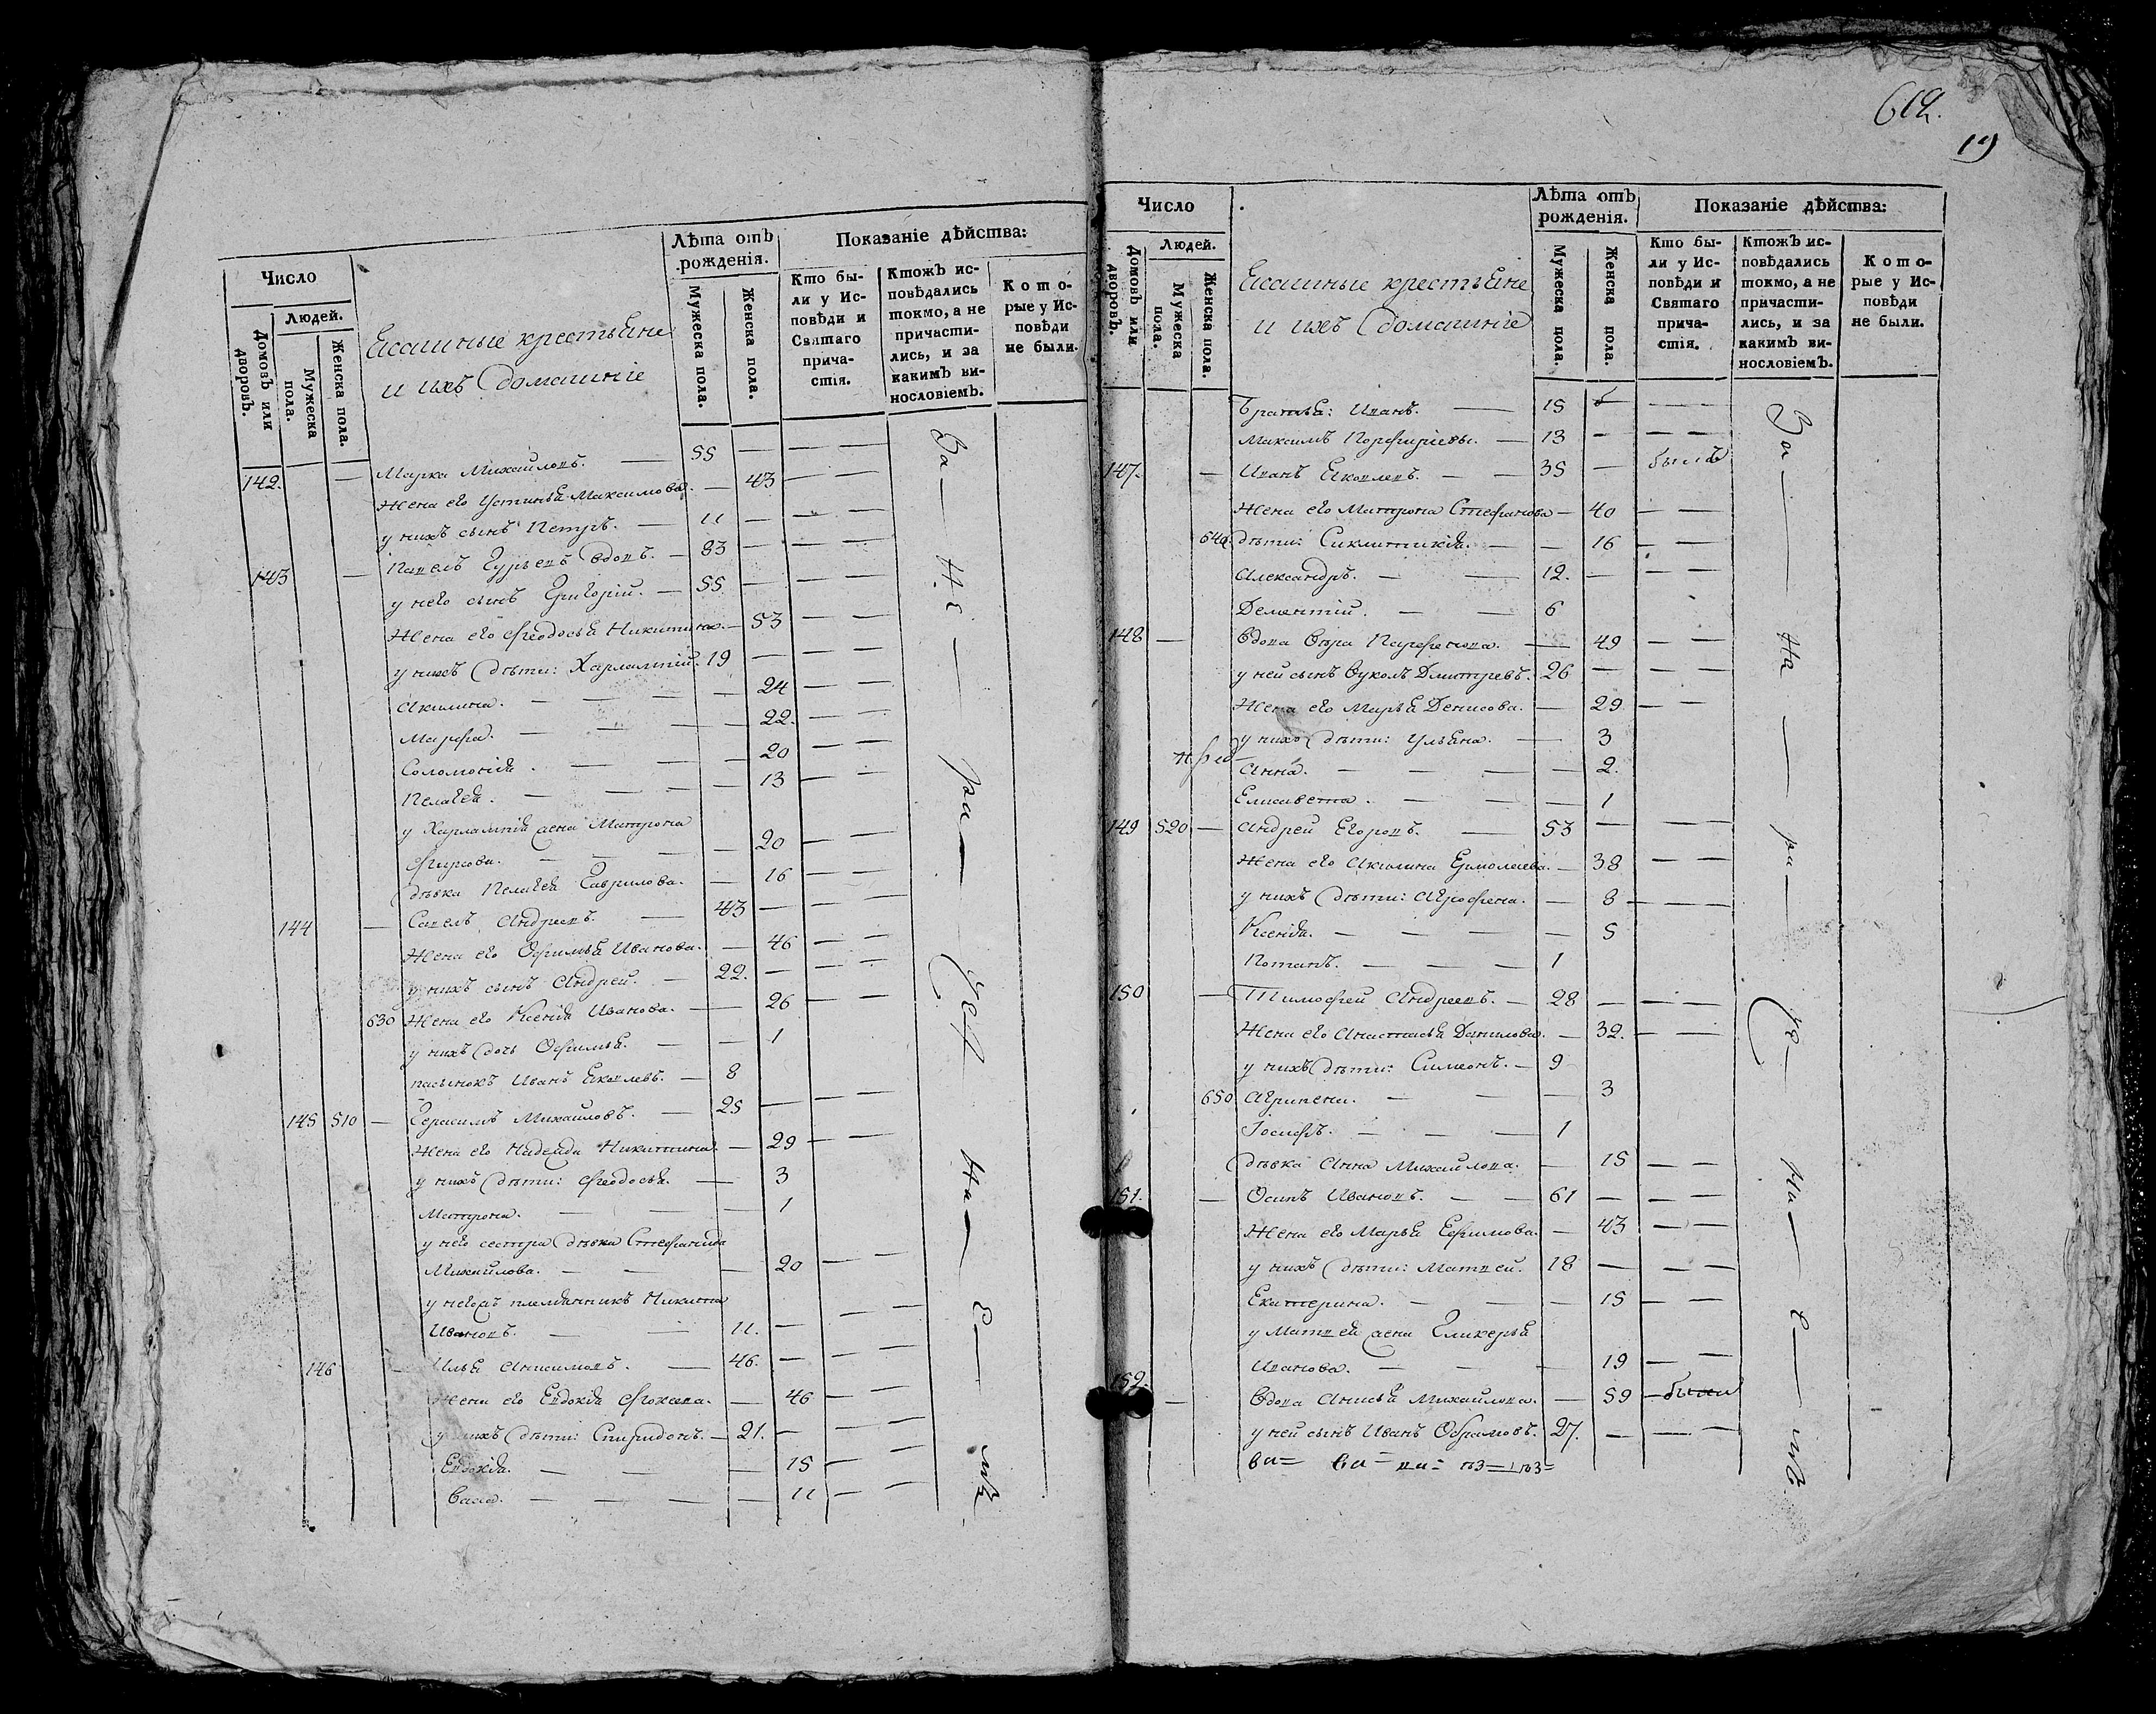 612.
19
Число
Людей.
Домовъ или дворовъ.
Мужеска пола.
Женска пола.
Ясашные крестьяне
и ихъ домашніе
Лѣта отъ рожденія.
Мужеска пола.
Женска пола.
Показаніе дѣйства:
Кто были у Исповѣди и Святаго причастія.
Ктожъ исповѣдались токмо, а не причастились, и за какимъ винословіемъ.
Которые у Исповѣди не были.
142. — Марка Михаиловъ. — 55 — — —
Жена его Устинья Максимова. — 43 — —
у нихъ сынъ Петръ. — 11 — — —
143 — Павелъ Гурьевъ вдовъ. — 83 — — —
у него сынъ Григорій. — 55 — — —
Жена его Ѳеодосья Никитина. — 53 — —
у нихъ дѣти: Харлампій. 19 — — —
Акилина. — — — 24 — —
Марфа. — — — 22. — —
Соломонія. — — — 20 — —
Пелагея. — — — 13 — —
у Харлампія жена Матрона
— — — 20 — —
дѣвка Пелагея Гаврилова. — 16 — —
144 — Савелъ Андреевъ. — 43 — — —
Жена его Офимья Иванова. — 46 — —
у нихъ сынъ Андрей. — 22. — — —
630 Жена его Ксенія Иванова. — 26 — —
у нихъ дочь Офимья. — — 1
пасынокъ Иванъ Яковлевъ. — 8
145 510 — Герасимъ Михаиловъ. — 25 — — —
Жена его Надежда Никитина. — 29 — —
у нихъ дѣти: Ѳеодосья. — 3
Матрона. — — 1
у него сестра дѣвка Стефанида
Михаилова. — — — 20 — —
племянникъ Никита
Ивановъ. — — 11. — — —
146 — Илья Анисимовъ. — 46. — — —
Жена его Евдокія — 46 — —
у нихъ дѣти: Спиридонъ. — 21. — — —
Евдокія. — — — 15 — —
Васса. — — — — 11 — —
За — Не — ра — Че На — е — мъ
Число
Людей.
Домовъ или дворовъ.
Мужеска пола.
Женска пола.
Ясашные крестьяне
и ихъ домашніе
Лѣта отъ рожденія.
Мужеска пола.
Женска пола.
Показаніе дѣйства:
Кто были у Исповѣди и Святаго причастія.
Ктожъ исповѣдались токмо, а не причастились, и за какимъ винословіемъ.
Которые у Исповѣди не были.
братья: Иванъ. — 15 — —
Максимъ Порфиріевы. — 13 — — —
147. — Иванъ Яковлевъ. — — 35 — былъ
Жена его Матрона Стефанова — 40 — —
640 дѣти: Сиклитикія. — — 16 — —
Александръ. — — 12. — — —
Дементій. — — 6
148 — Вдова Вѣра Парфенова. — 49 — —
у ней сынъ Вуколъ Дмитревъ. 26 — — —
Жена его Марья Денисова. — 29 — —
у нихъ дѣти: Ульяна. — 3
Анна. — — — 2.
Елисавета. — — — 1
149 520 — Андрей Егоровъ. — 53 — — —
Жена его Акилина Ермолаева. — 38 — —
у нихъ дѣти: Агрофена. — 8 — — —
Ксенія. — — — — 5
Потапъ. — — — 1
150 — Тимофей Андреевъ. — 28 — — —
Жена его Анастасья Данилова. — 32. — —
у нихъ дѣти: Симеонъ. — 9
650 Агрипена. — — — 3
Іосифъ. — — — 1
дѣвка Анна Михаилова. — 15 — —
151. — Осипъ Ивановъ. — — 61 — — —
Жена его Марья Ефимова. — 43 — —
у нихъ дѣти: Матвей. 18 — — —
Екатерина. — — — 15 — —
у Матвея жена Гликерья
Иванова. — — 19 — —
152. — Вдова Анисья Михаилова. — 59 — были
у ней сынъ Иванъ Обрамовъ. 27. — — —
За — На — ра — Че — На — е — мъ.